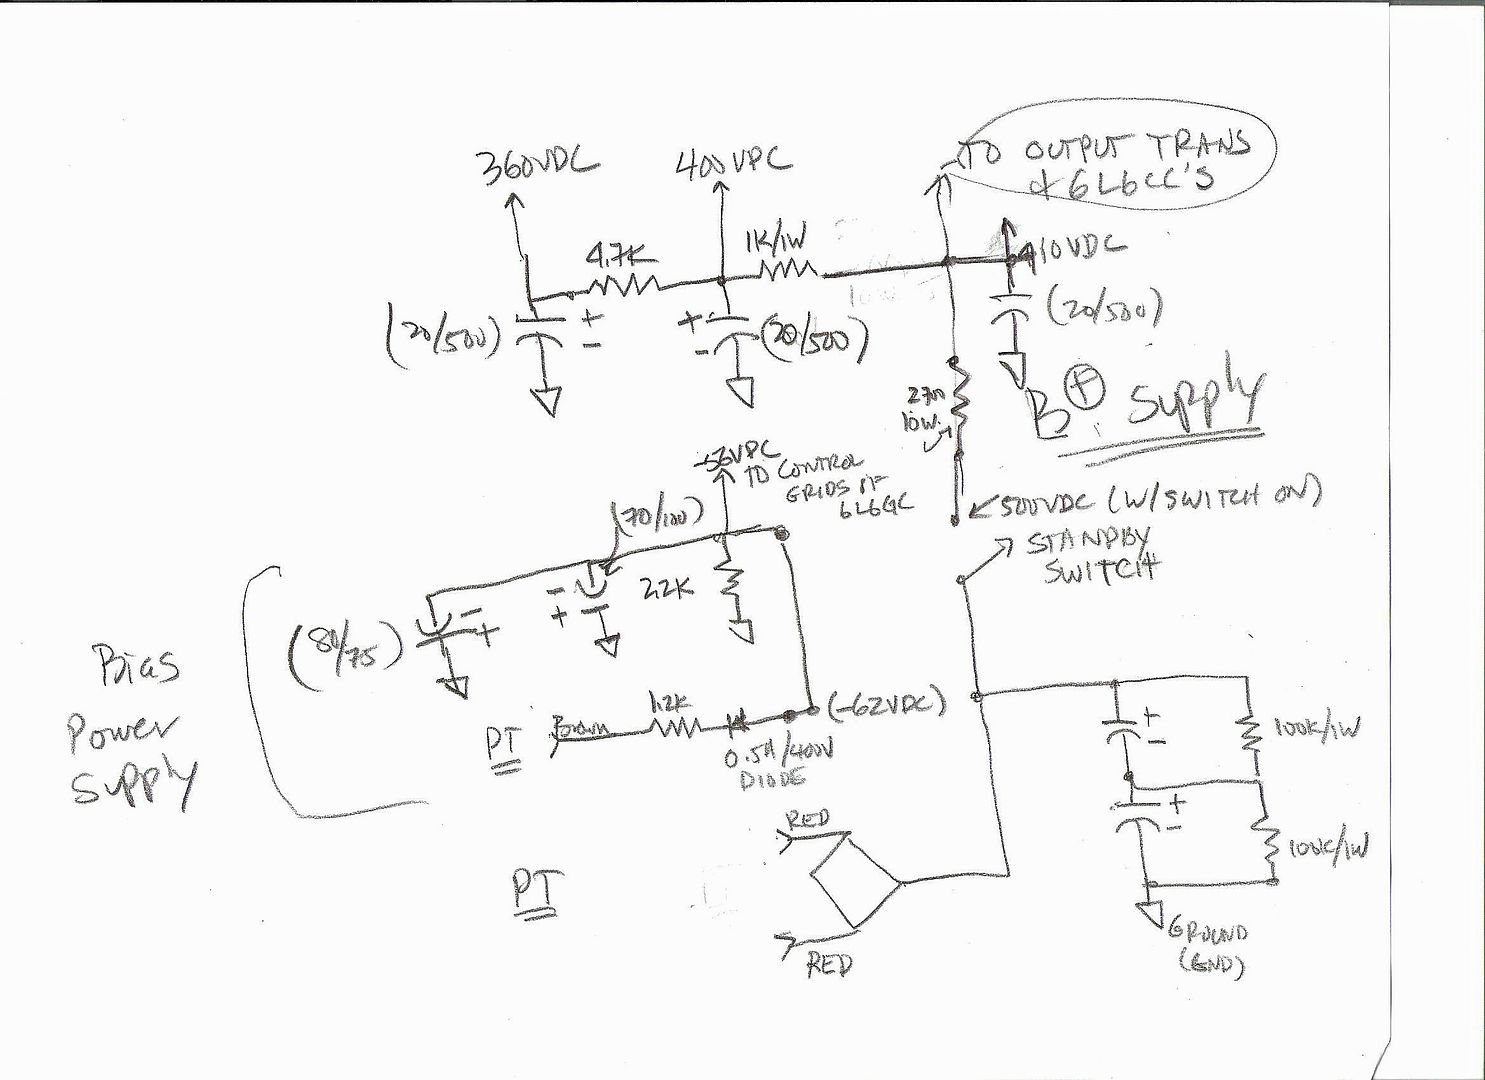 360VDC
400VDC
TO OUTPUT TRANS
& 6L6GC'S
4.7K
1K/1W
410VDC
(20/500)
+
-
+
-
(20/500)
(20/500)
2700
10W.
B+ Supply
VDC
TO CONTROL
GRIDS OF
6L6GC
(70/100)
500VDC (W/SWITCH ON)
STANDBY
SWITCH
-
+
2.2K
-
+
(80/75)
Bias
Power
Supply
PT
Brown
1.2K
(-62VDC)
0.5A/400V
DIODE
+
-
100K/1W
+
-
100K/1W
RED
PT
RED
GROUND
(GND)